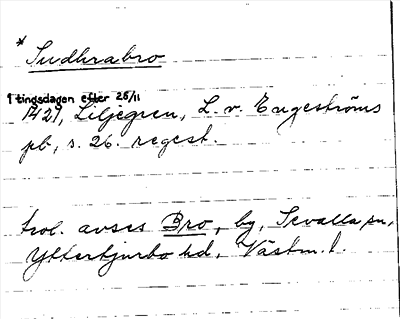 * Sudhrabro
1 tingsdagen efter 25/11
1429, Liljegren, L. v. Engeströms
pb, s. 26. regest.
trol. avses Bro, by, Sevalla sn,
Yttertjurbo hd, Västm. l.